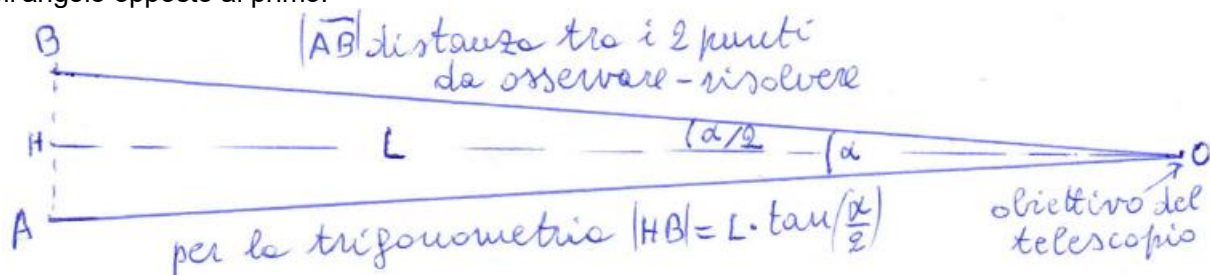 ll'angolo opposto al primo.
B |AB| distanza tra i 2 punti
da osservare - risolvere
H L (α/2 (α O
A per la trigonometria |HB| = L · tan(α/2)
obiettivo del
telescopio